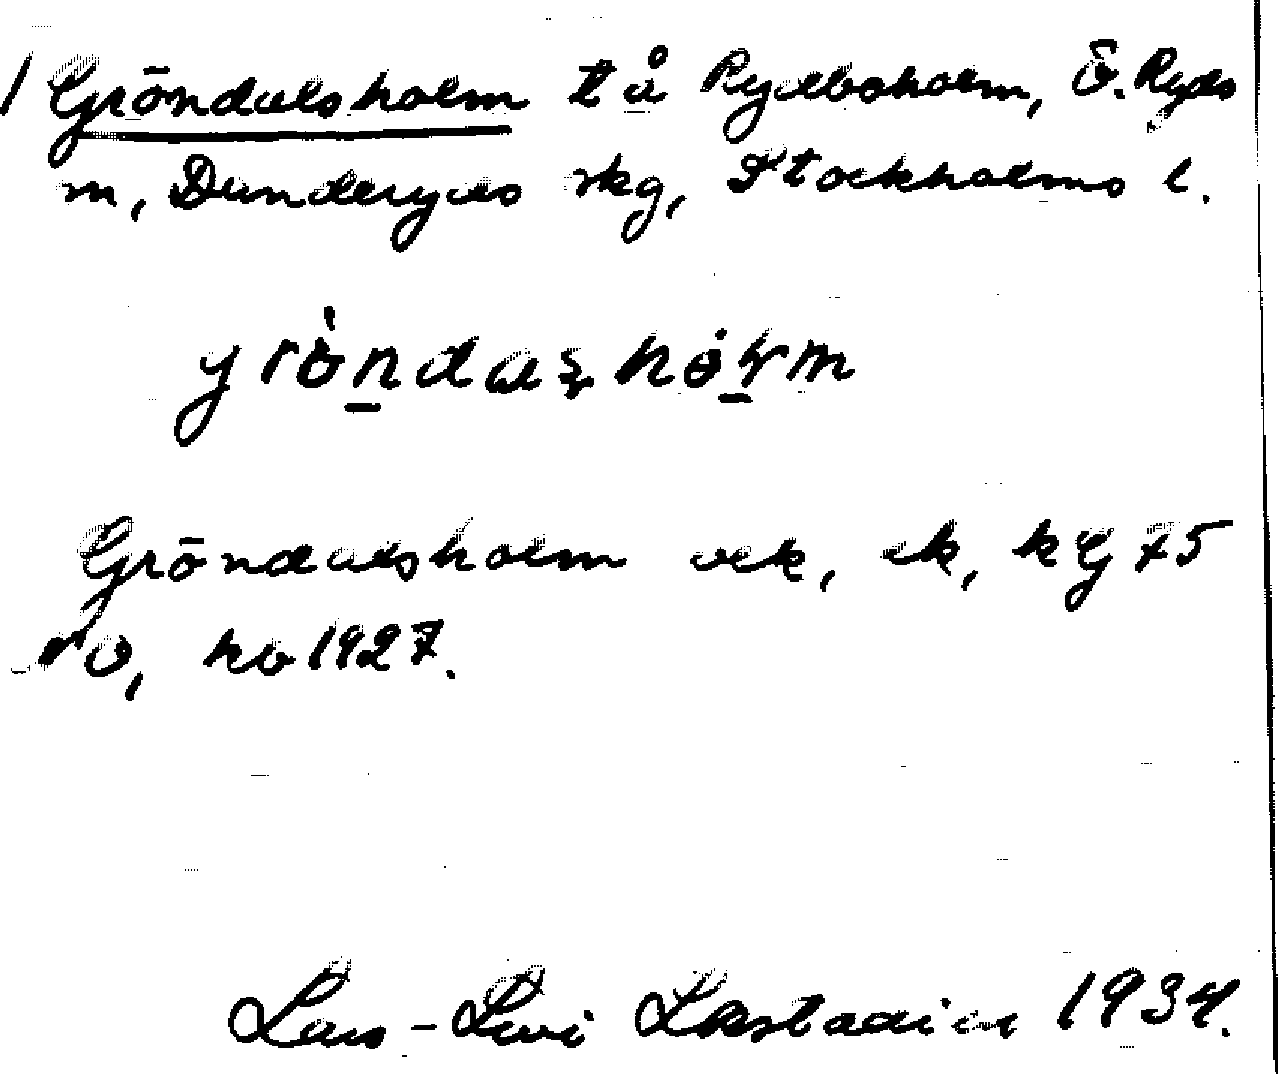 / Gröndalsholm t å Rydboholm, Ö. Ryds
sn, Danderyds skg, Stockholms l.
Gröndalsholm eck, ek, kg 75
NO, hb 1927.
Lars-Levi Læstadius 1934.